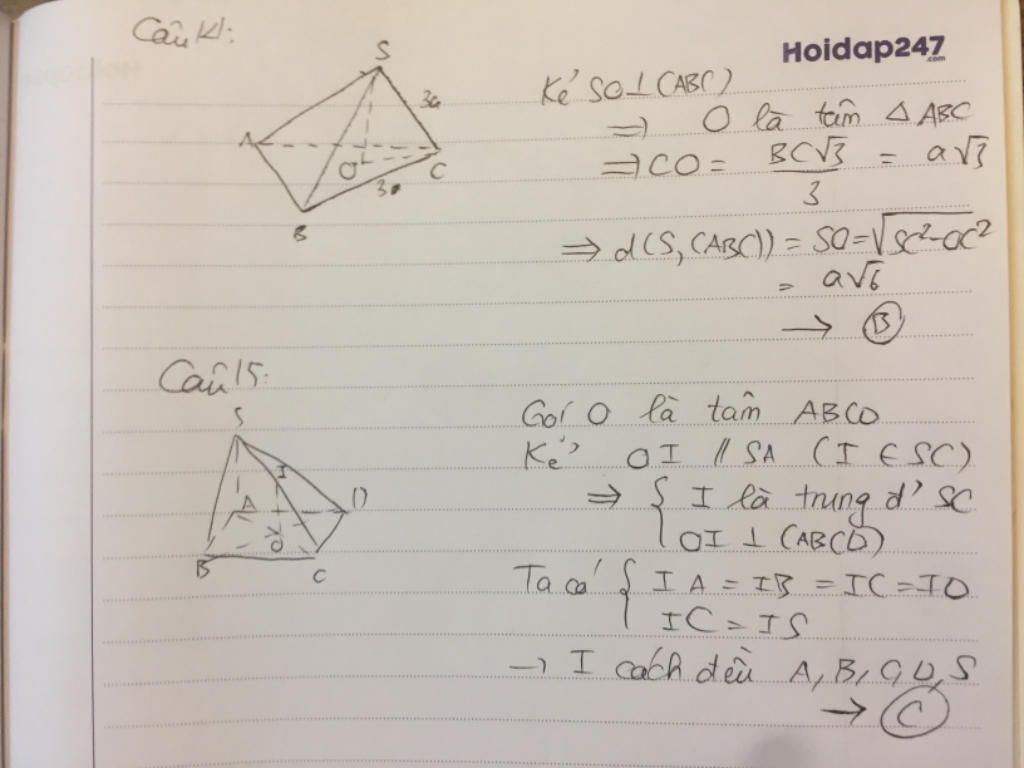 Câu 14:
Hoidap247
.com
S
3a
A
O
C
3a
B
Kẻ SO ⊥ (ABC)
⇒ O là tâm △ ABC
⇒ CO = BC√3 / 3 = a√3
⇒ d(S, (ABC)) = SO = √SC² - OC²
= a√6
→ B
Câu 15:
S
I
A
D
O
B
C
Gọi O là tâm ABCD
Kẻ OI // SA (I ∈ SC)
⇒ { I là trung đ' SC
OI ⊥ (ABCD)
Ta có { IA = IB = IC = ID
IC = IS
→ I cách đều A, B, C, D, S
→ C